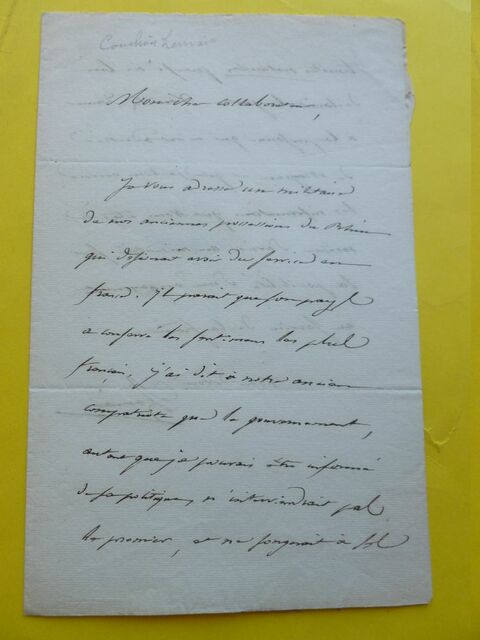 Mon cher collaborateur,
Je vous adresse un militaire
de nos anciennes possessions du Rhin
qui désirait avoir du service en
france. Il parait que son pays
a conservé les sentimens les plus
français. j'ai dit à notre ancien
compatriote que le gouvernement,
autant que je pouvais être informé
de sa politique, n'interviendrait pas
le premier, et ne songerait à